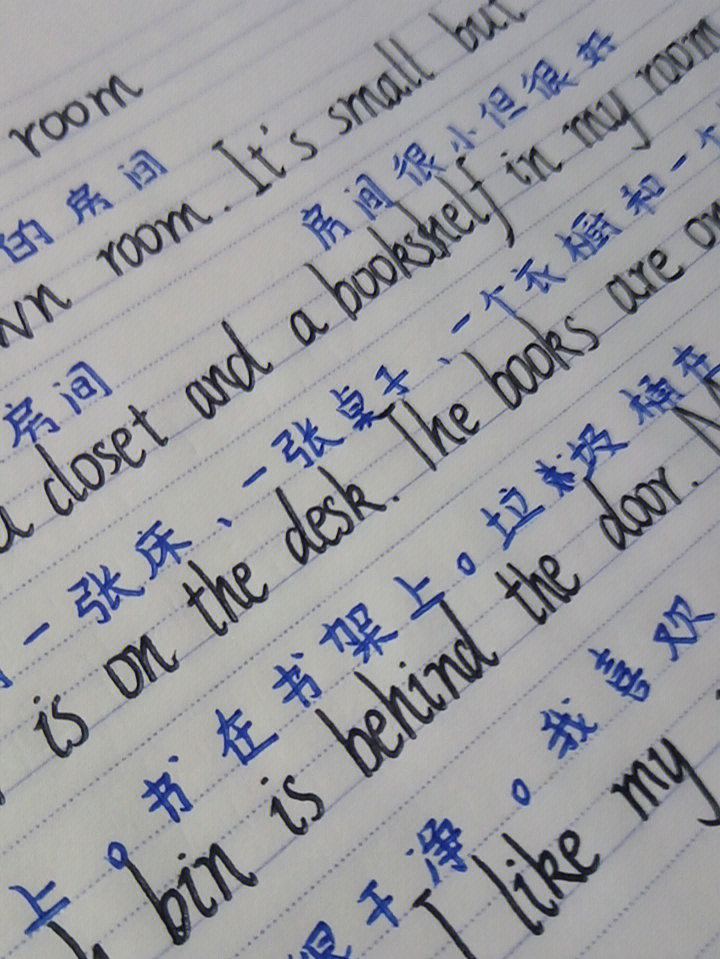 room
的房间
room. It's small but
房间 房间很小但很好
a closet and a bookshelf in my room
一张床、一张桌子、一个衣橱和一个
is on the desk. The books are on
上。书在书架上。垃圾桶在
bin is behind the door.
很干净。我喜欢
I like my